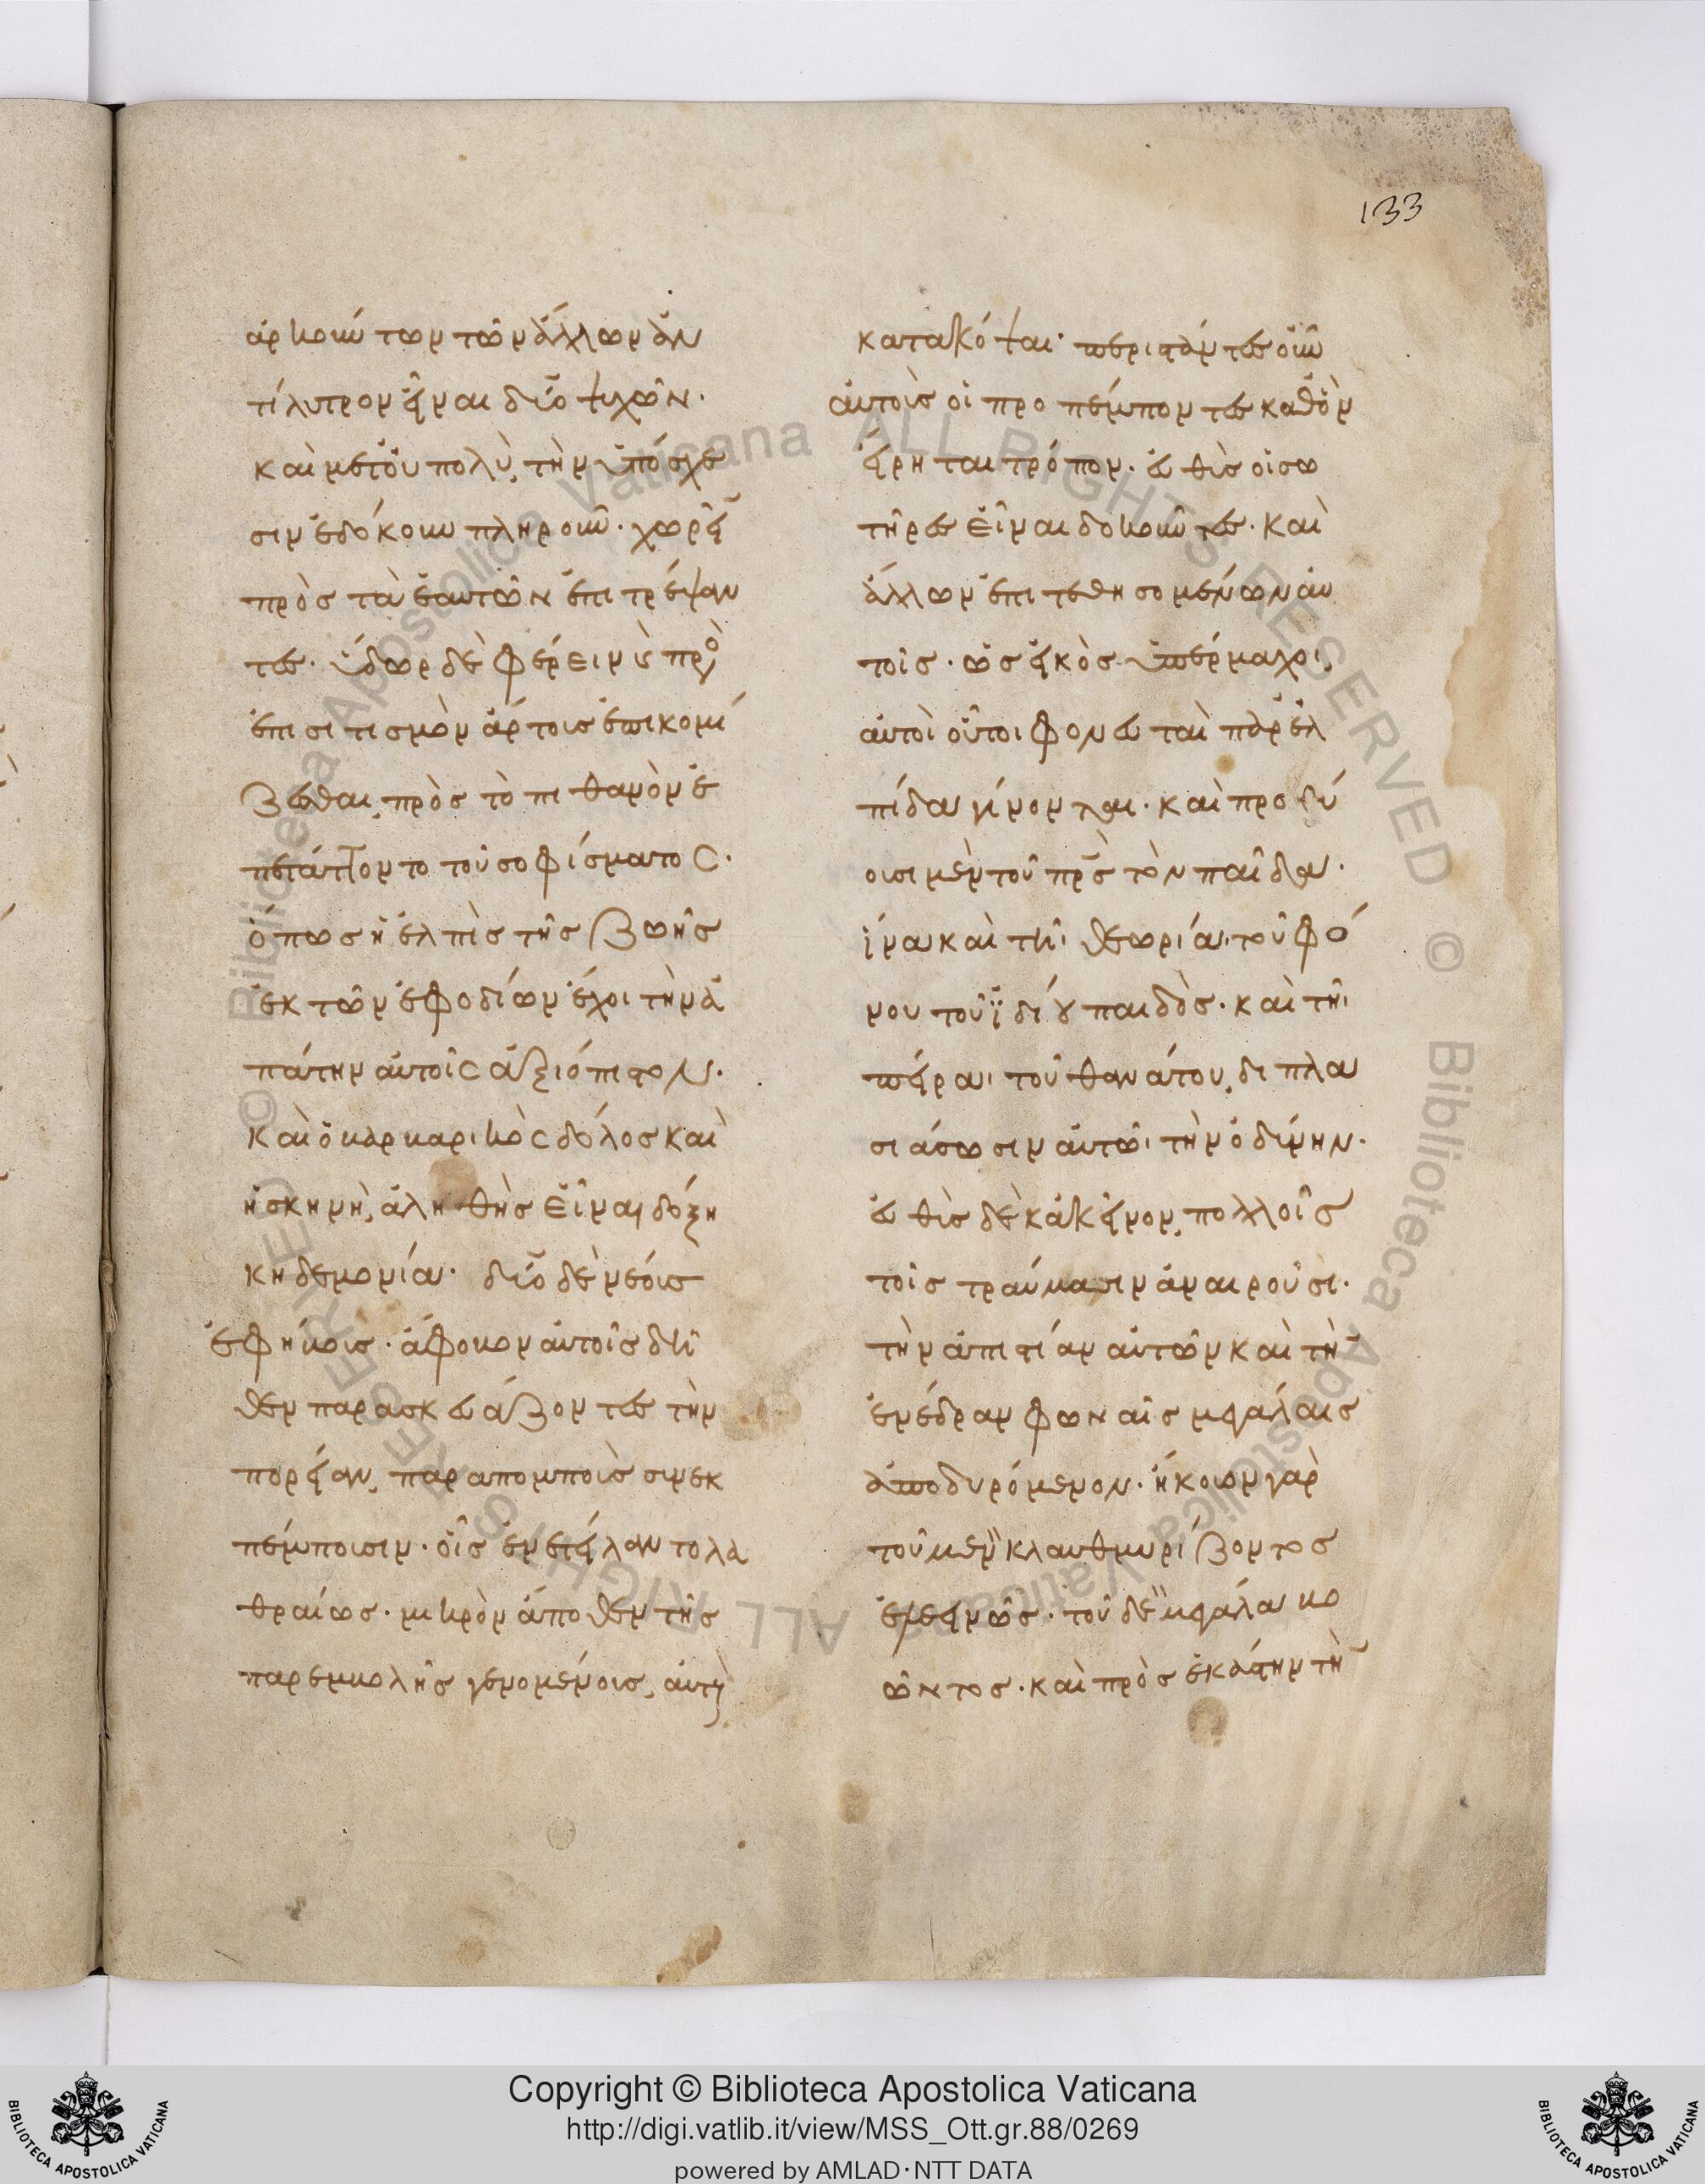 133
ἀρκούντων τῶν ἄλλων ἀν
τίλυτρον εἶναι δύο ψυχῶν.
καὶ μετ' οὐ πολὺ, τὴν ὑπόσχε
σιν ἐδόκουν πληροῦν. χωρεῖν
πρὸς τὰ ἑαυτῶν ἐπιτρέψαν
τες. ὕδωρ δὲ φέρειν καὶ πρὸς
ἐπισιτισμὸν ἄρτους ἐπικομί
ζεσθαι, πρὸς τὸ πιθανὸν ἐ
πετάττοντο τοῦ σοφίσματος.
ὅπως ἡ ἐλπὶς τῆς ζωῆς
ἐκ τῶν ἐφοδίων ἔχοι τὴν ἀ
πάτην αὐτοῖς ἀξιόπιστον.
καὶ ὁ βαρβαρικὸς δόλος καὶ
ἡ σκηνὴ, ἀληθὴς εἶναι δόξῃ
κηδεμονία. δύο δὲ νέους
ἐφήβους. ἄφοβον αὐτοῖς δῆ
θεν παρασκευάζοντες τὴν
πορείαν, παραπομποὺς συνεκ
πέμπουσιν. οἷς ἐνετείλαντο λα
θραίως. μικρὸν ἄποθεν τῆς
παρεμβολῆς γενομένοις, αὐτοὺς
κατακόψαι. περιστάντες οὖν
αὐτοὺς οἱ προπέμποντες καθ' ὃν
εἴρηται τρόπον. εὐθὺς οἱ σω
τῆρες εἶναι δοκοῦντες. καὶ
ἄλλων ἐπιτεθησομένων αὐ
τοῖς. ὡς εἰκὸς ὑπέρμαχοι,
αὐτοὶ οὗτοι φονευταὶ παρ' ἐλ
πίδα γίνονται. καὶ προθύ
ουσι μὲν τοῦ πατρὸς τὸν παῖδα.
ἵνα καὶ τῆι θεωρίαι τοῦ φό
νου τοῦ ἰδίου παιδὸς. καὶ τῆι
πείραι τοῦ θανάτου, διπλα
σιάσωσιν αὐτῶι τὴν ὀδύνην.
εὐθὺς δὲ κἀκεῖνον, πολλοῖς
τοῖς τραύμασιν ἀναιροῦσι.
τὴν ἀπιστίαν αὐτῶν καὶ τὴν
ἐνέδραν φωναῖς μεγάλαις
ἀποδυρόμενον. ἤκουον γὰρ
τοῦ μὲν κλαυθμυρίζοντος
ἐλεεινῶς. τοῦ δὲ μεγάλα βο
ῶντος. καὶ πρὸς ἑκάστην τὴν
Copyright © Biblioteca Apostolica Vaticana
http://digi.vatlib.it/view/MSS_Ott.gr.88/0269
powered by AMLAD·NTT DATA
BIBLIOTECA APOSTOLICA VATICANA
BIBLIOTECA APOSTOLICA VATICANA
© Biblioteca Apostolica Vaticana ALL RIGHTS RESERVED
© Biblioteca Apostolica Vaticana ALL RIGHTS RESERVED